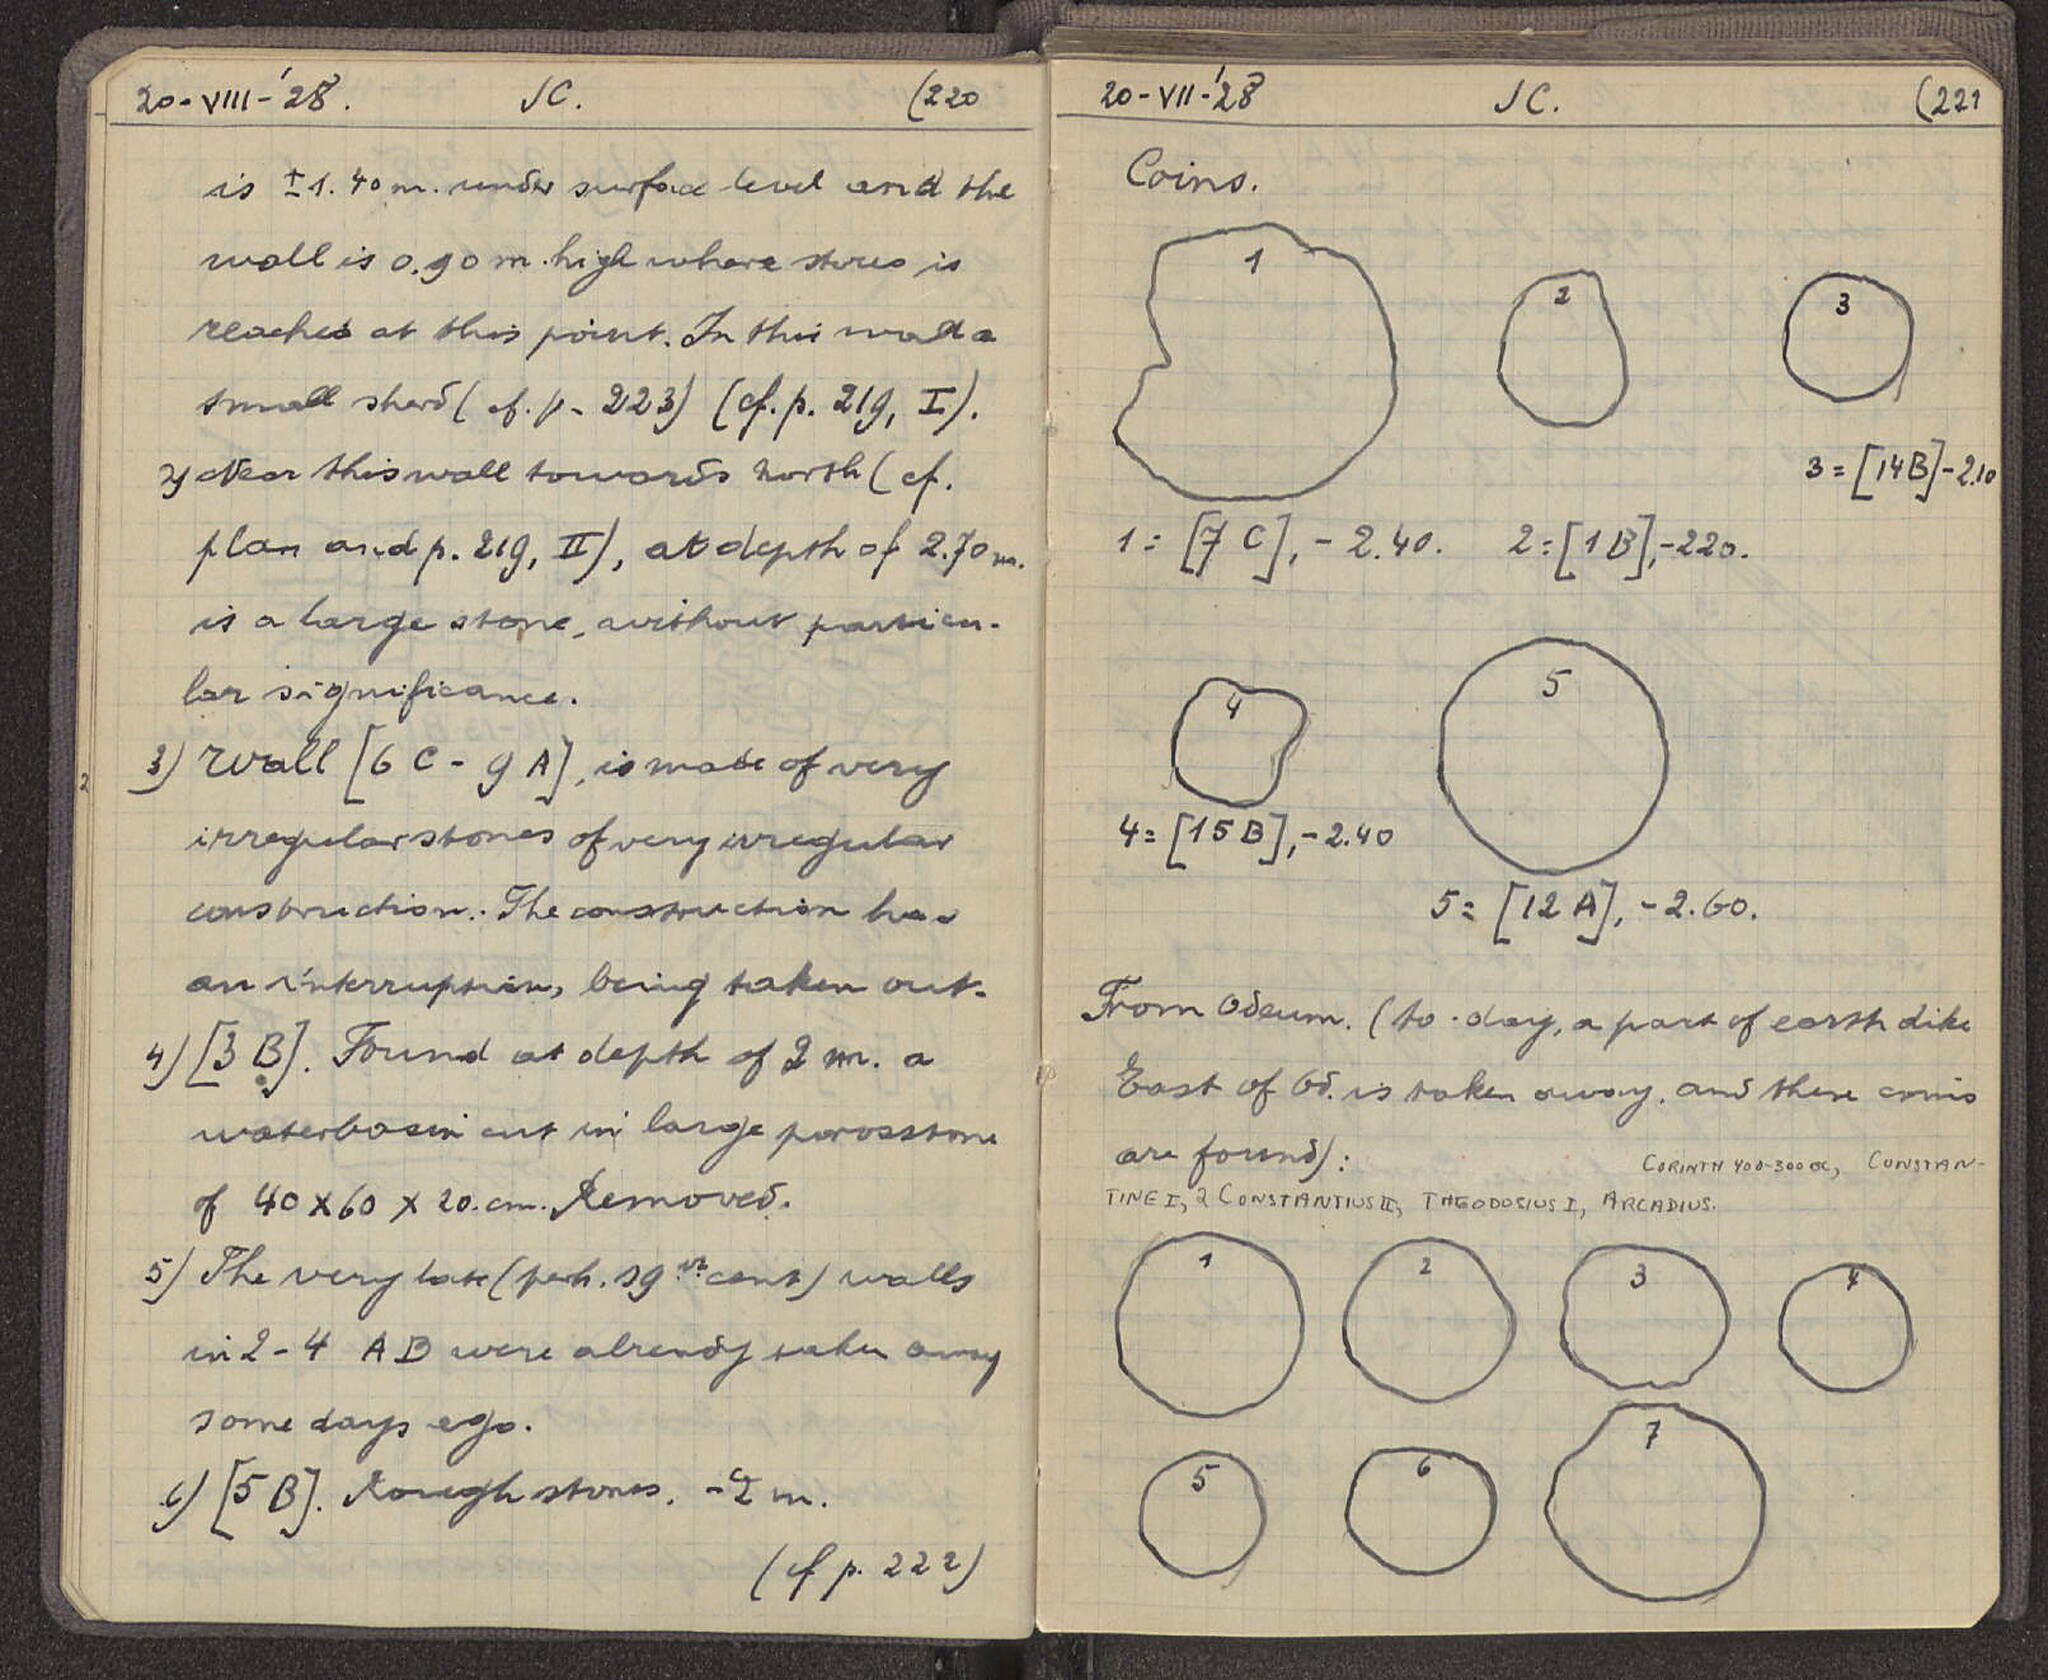 20-VIII-'28. JC. (220
is ±1.40 m. under surface level and the
wall is 0.90 m. high where stereo is
reached at this point. In this wall a
small sherd (cf. p. 223) (cf. p. 219, I).
2) Near this wall towards north (cf.
plan and p. 219, II), at depth of 2.70 m.
is a large stone, without particu-
lar significance.
3) Wall [6 C - 9 A], is made of very
irregular stones of very irregular
construction. The construction has
an interruption, being taken out.
4) [3 B]. Found at depth of 2 m. a
waterbasin cut in large porosstone
of 40 x 60 x 20. cm. Removed.
5) The very late (perh. 19th cent) walls
in 2-4 AB were already taken away
some days ego.
6) [5 B]. Rough stones. -2 m.
(cf p. 222)
2
20-VII-'28 JC. (221
Coins.
1
2
3
3 = [14 B] -2.10
1 = [7 C], -2.40. 2 = [1 B], -220.
4
5
4 = [15 B], -2.40
5 = [12 A], -2.60.
From Odeum. (to-day, a part of earth dike
East of Od. is taken away, and there coins
are found):
CORINTH 400-300 BC, CONSTAN-
TINE I, 2 CONSTANTIUS II, THEODOSIUS I, ARCADIUS.
1 2 3 4
5 6 7